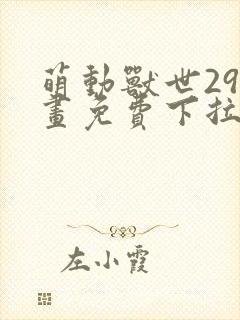 萌動獸世29
畫免費下拉
左小霞